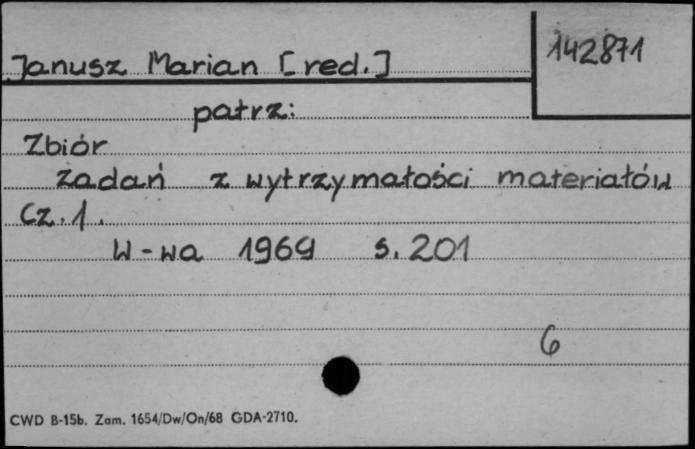 142871
Janusz Marian [red.]
patrz:
Zbiór
zadań z wytrzymałości materiałów
Cz. 1.
W-wa 1969 s. 201
6
CWD B-15b. Zam. 1654/Dw/On/68 GDA-2710.